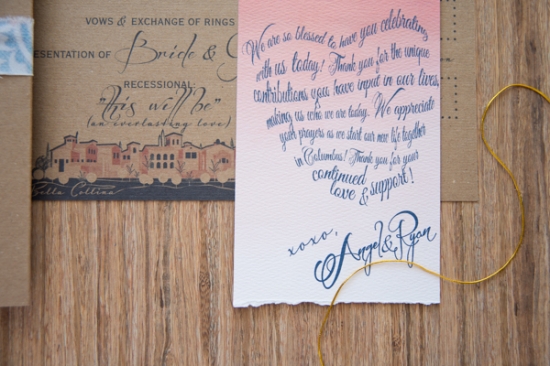 VOWS & EXCHANGE OF RINGS
ESENTATION OF Bride &
RECESSIONAL:
"This will be"
(an everlasting love)
Bella Collina
We are so blessed to have you celebrating
with us today! Thank you for the unique
contributions you have input in our lives,
making us who we are today. We appreciate
your prayers as we start our new life together
in Columbus! Thank you for your
continued
love & support!
xoxo,
Angel & Ryan